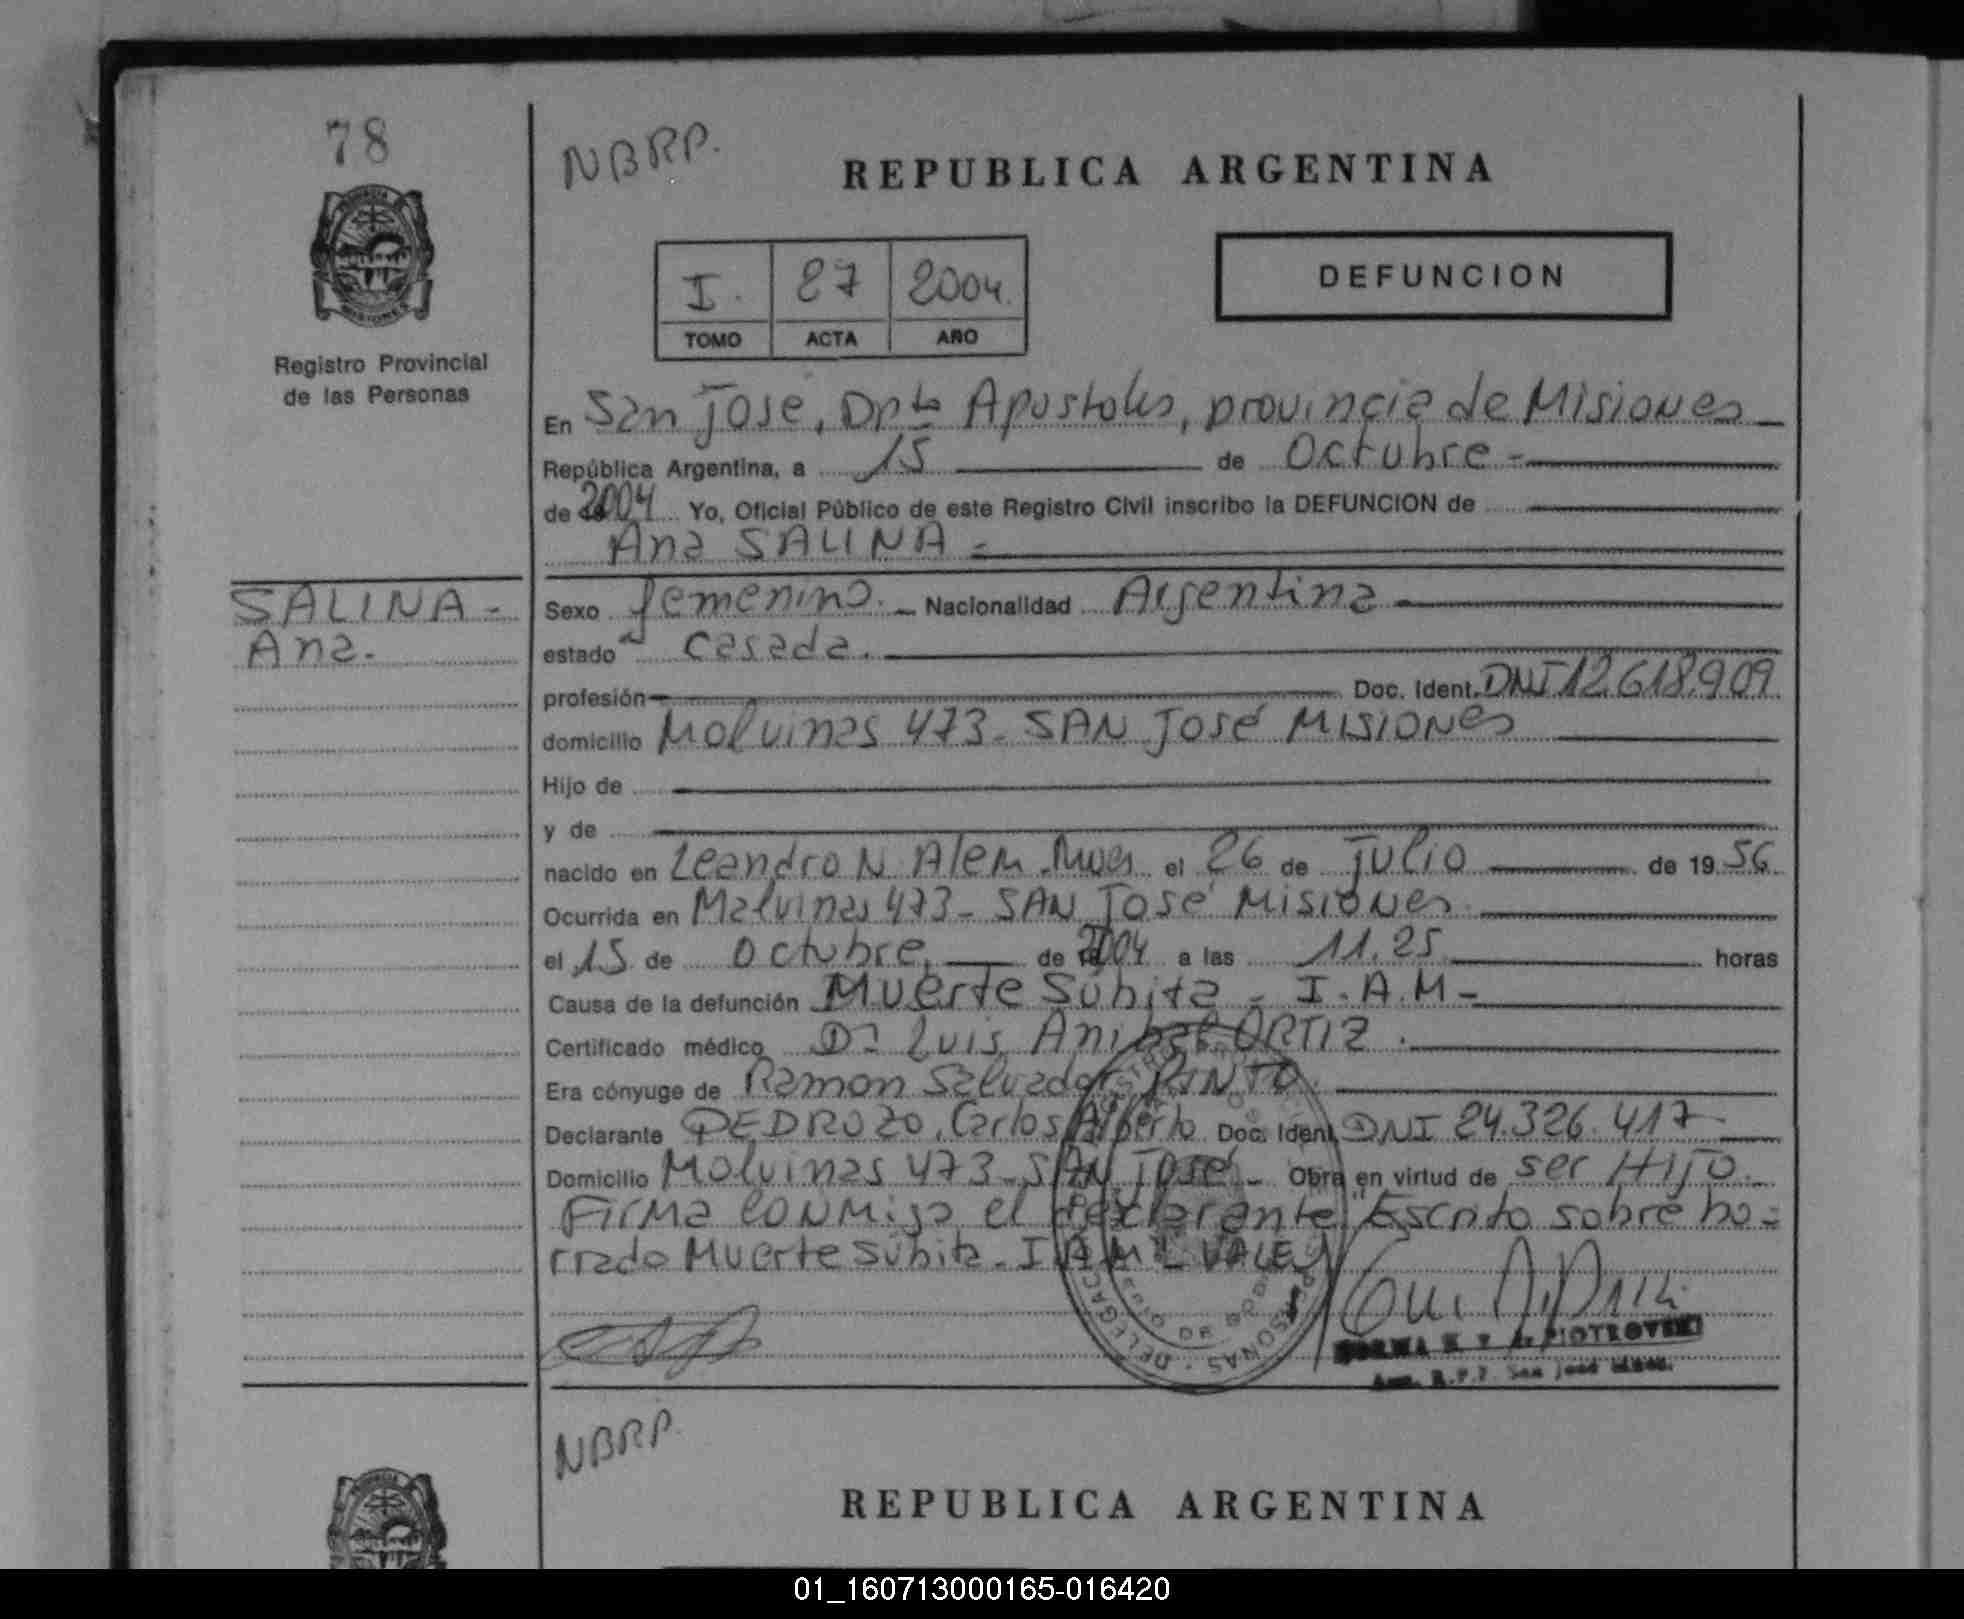 78
NBRP.
REPUBLICA ARGENTINA
I. 87 2004.
TOMO ACTA AÑO
DEFUNCION
Registro Provincial
de las Personas
En San José, Dpto Apostoles, provincia de Misiones
República Argentina, a 15 de Octubre -
de 2004 Yo, Oficial Público de este Registro Civil inscribo la DEFUNCION de
Ana SALINA -
SALINA -
Ana.
Sexo femenino. Nacionalidad Argentina
estado casada.
profesión Doc. Ident. DNI 12.618.909
domicilio Malvinas 473 - SAN José MISIONES
Hijo de
y de
nacido en Leandro N. Alem. Mnes el 26 de Julio de 1956
Ocurrida en Malvinas 473 - SAN José Misiones.
el 15 de octubre, de 2004 a las 11.25 horas
Causa de la defunción Muerte Súbita - I.A.M -
Certificado médico Dr Luis Anibal ORTIZ.
Era cónyuge de Ramon Salvador PINTO.
Declarante PEDROZO, Carlos Alberto Doc. Ident. DNI 24.326.417
Domicilio Malvinas 473 - SAN José - Obra en virtud de ser Hijo.
Firma conmigo el declarante "Escrito sobre bo-
rrado Muerte Súbita. I.A.M" VALE
DELEGAC PERSONAS
PIOTROVSKI
R.P.P. San José
NBRP.
REPUBLICA ARGENTINA
01_160713000165-016420